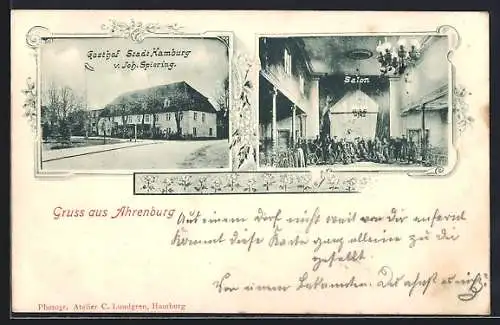 Gasthof Stadt Hamburg
v. Joh. Spiering.
Salon
Gruss aus Ahrenburg
Auf einem Dorf nicht weit von dir entfernt
kommt diese Karte ganz alleine zu dir
gesellt.
Von einem Bekannten. Du ahnst es nicht
Photogr. Atelier C. Lundgren, Hamburg